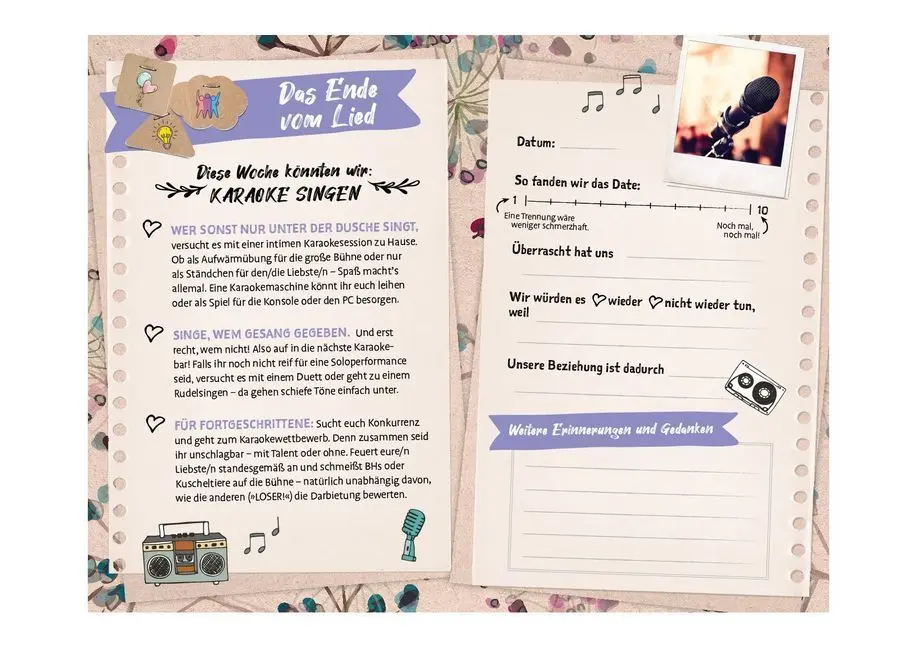 Das Ende
vom Lied
Diese Woche könnten wir:
KARAOKE SINGEN
WER SONST NUR UNTER DER DUSCHE SINGT,
versucht es mit einer intimen Karaokesession zu Hause.
Ob als Aufwärmübung für die große Bühne oder nur
als Ständchen für den/die Liebste/n – Spaß macht's
allemal. Eine Karaokemaschine könnt ihr euch leihen
oder als Spiel für die Konsole oder den PC besorgen.
SINGE, WEM GESANG GEGEBEN. Und erst
recht, wem nicht! Also auf in die nächste Karaoke-
bar! Falls ihr noch nicht reif für eine Soloperformance
seid, versucht es mit einem Duett oder geht zu einem
Rudelsingen – da gehen schiefe Töne einfach unter.
FÜR FORTGESCHRITTENE: Sucht euch Konkurrenz
und geht zum Karaokewettbewerb. Denn zusammen seid
ihr unschlagbar – mit Talent oder ohne. Feuert eure/n
Liebste/n standesgemäß an und schmeißt BHs oder
Kuscheltiere auf die Bühne – natürlich unabhängig davon,
wie die anderen (»LOSER!«) die Darbietung bewerten.
Datum:
So fanden wir das Date:
1 10
Eine Trennung wäre
weniger schmerzhaft.
Noch mal,
noch mal!
Überrascht hat uns
Wir würden es wieder nicht wieder tun,
weil
Unsere Beziehung ist dadurch
Weitere Erinnerungen und Gedanken